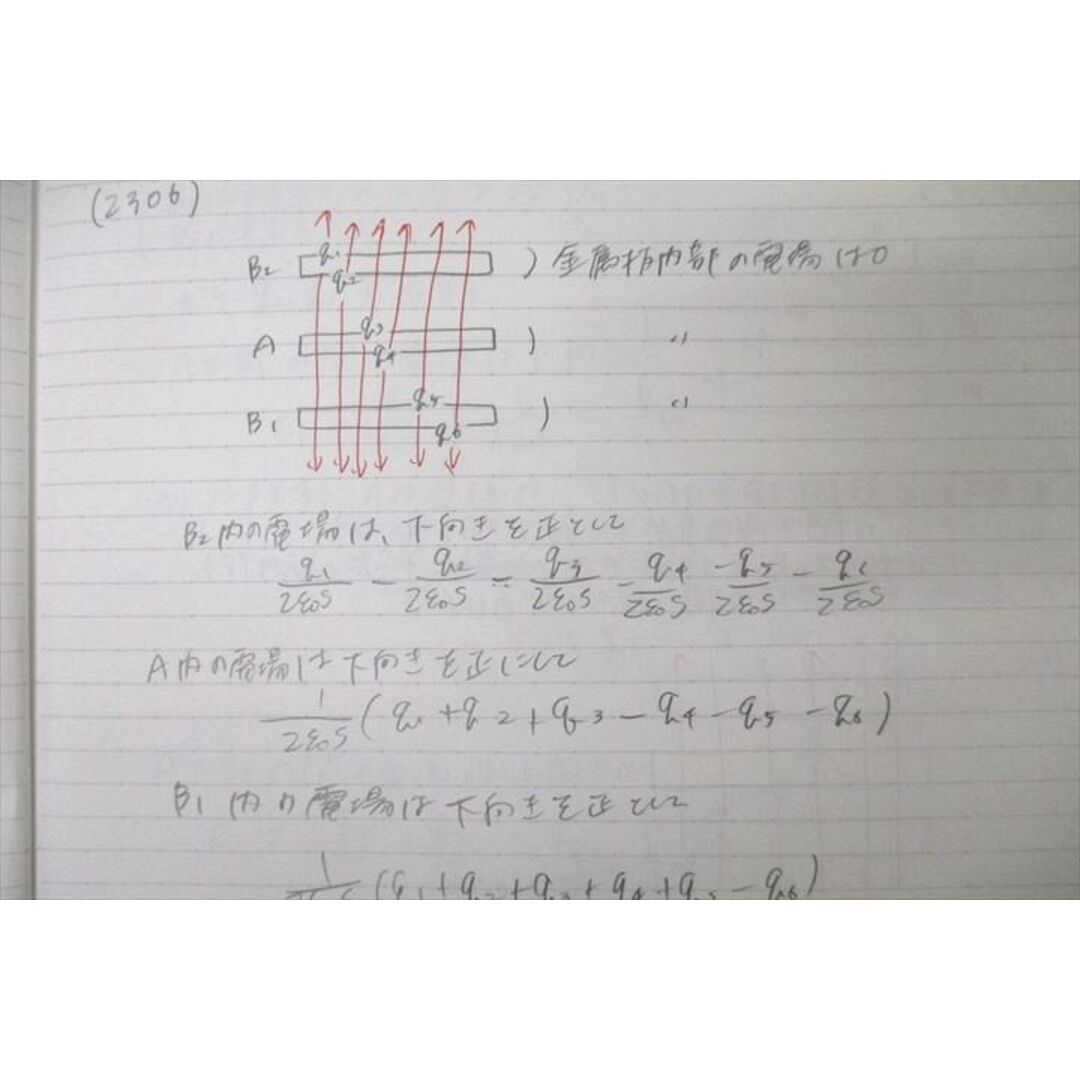 (2306)
B₂ q₁ q₂ ) 金属板内部の電場は0
A q₃ q₄ ) 〃
B₁ q₅ q₆ ) 〃
B₂内の電場は、下向きを正として
q₁/2ε₀S - q₂/2ε₀S - q₃/2ε₀S - q₄/2ε₀S - q₅/2ε₀S - q₆/2ε₀S
A内の電場は下向きを正にして
1/2ε₀S (q₁ + q₂ + q₃ - q₄ - q₅ - q₆)
B₁内の電場は下向きを正として
(q₁ + q₂ + q₃ + q₄ + q₅ - q₆)